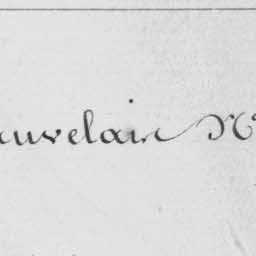 auvelain N